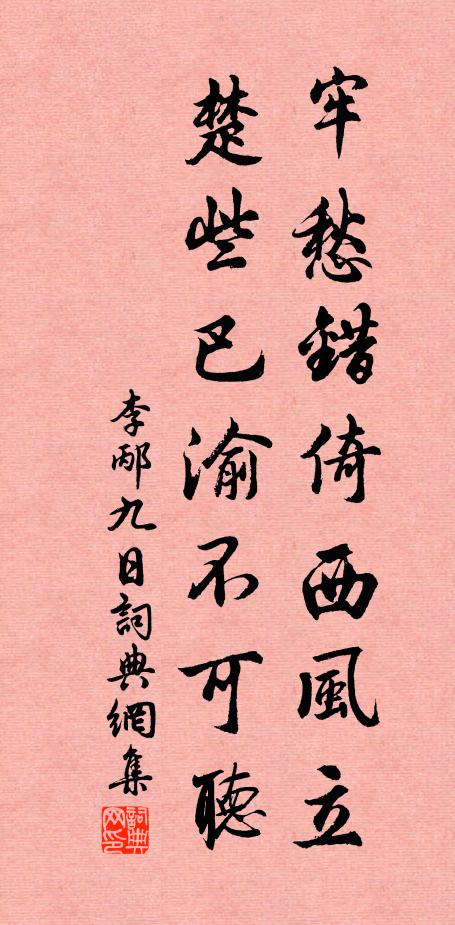 牢愁錯倚西風立
楚些巳渝不可聽
李邴九日詞典網集
詞典网印